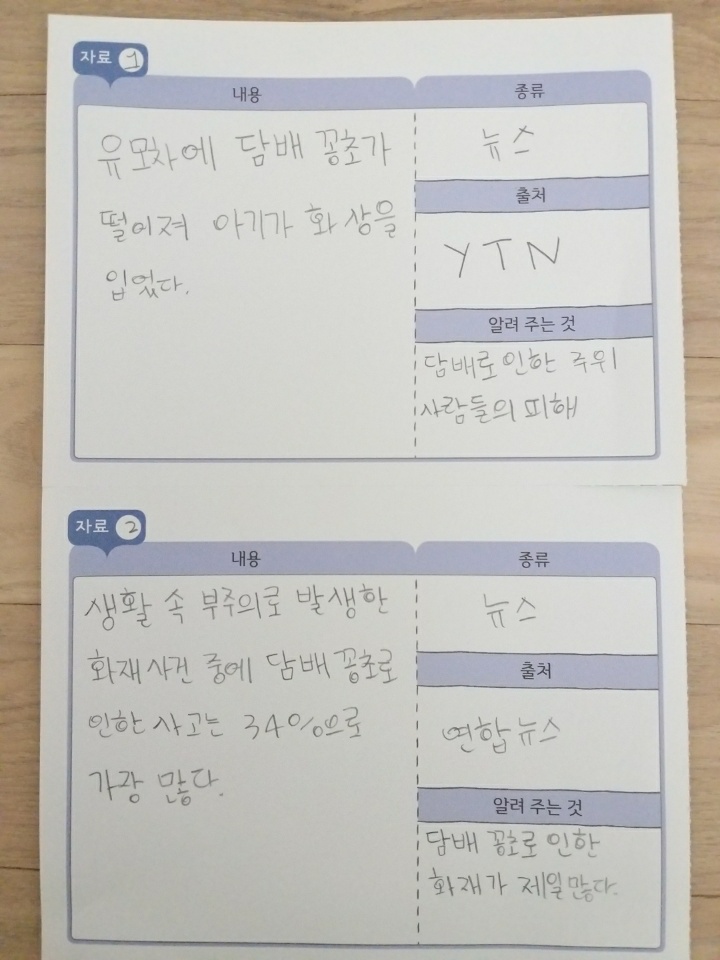 자료 1
내용
종류
유모차에 담배 꽁초가
떨어져 아기가 화상을
입었다.
뉴스
출처
YTN
알려 주는 것
담배로 인한 주위
사람들의 피해
자료 2
내용
종류
생활 속 부주의로 발생한
화재사건 중에 담배 꽁초로
인한 사고는 34%으로
가장 많다.
뉴스
출처
연합뉴스
알려 주는 것
담배 꽁초로 인한
화재가 제일많다.